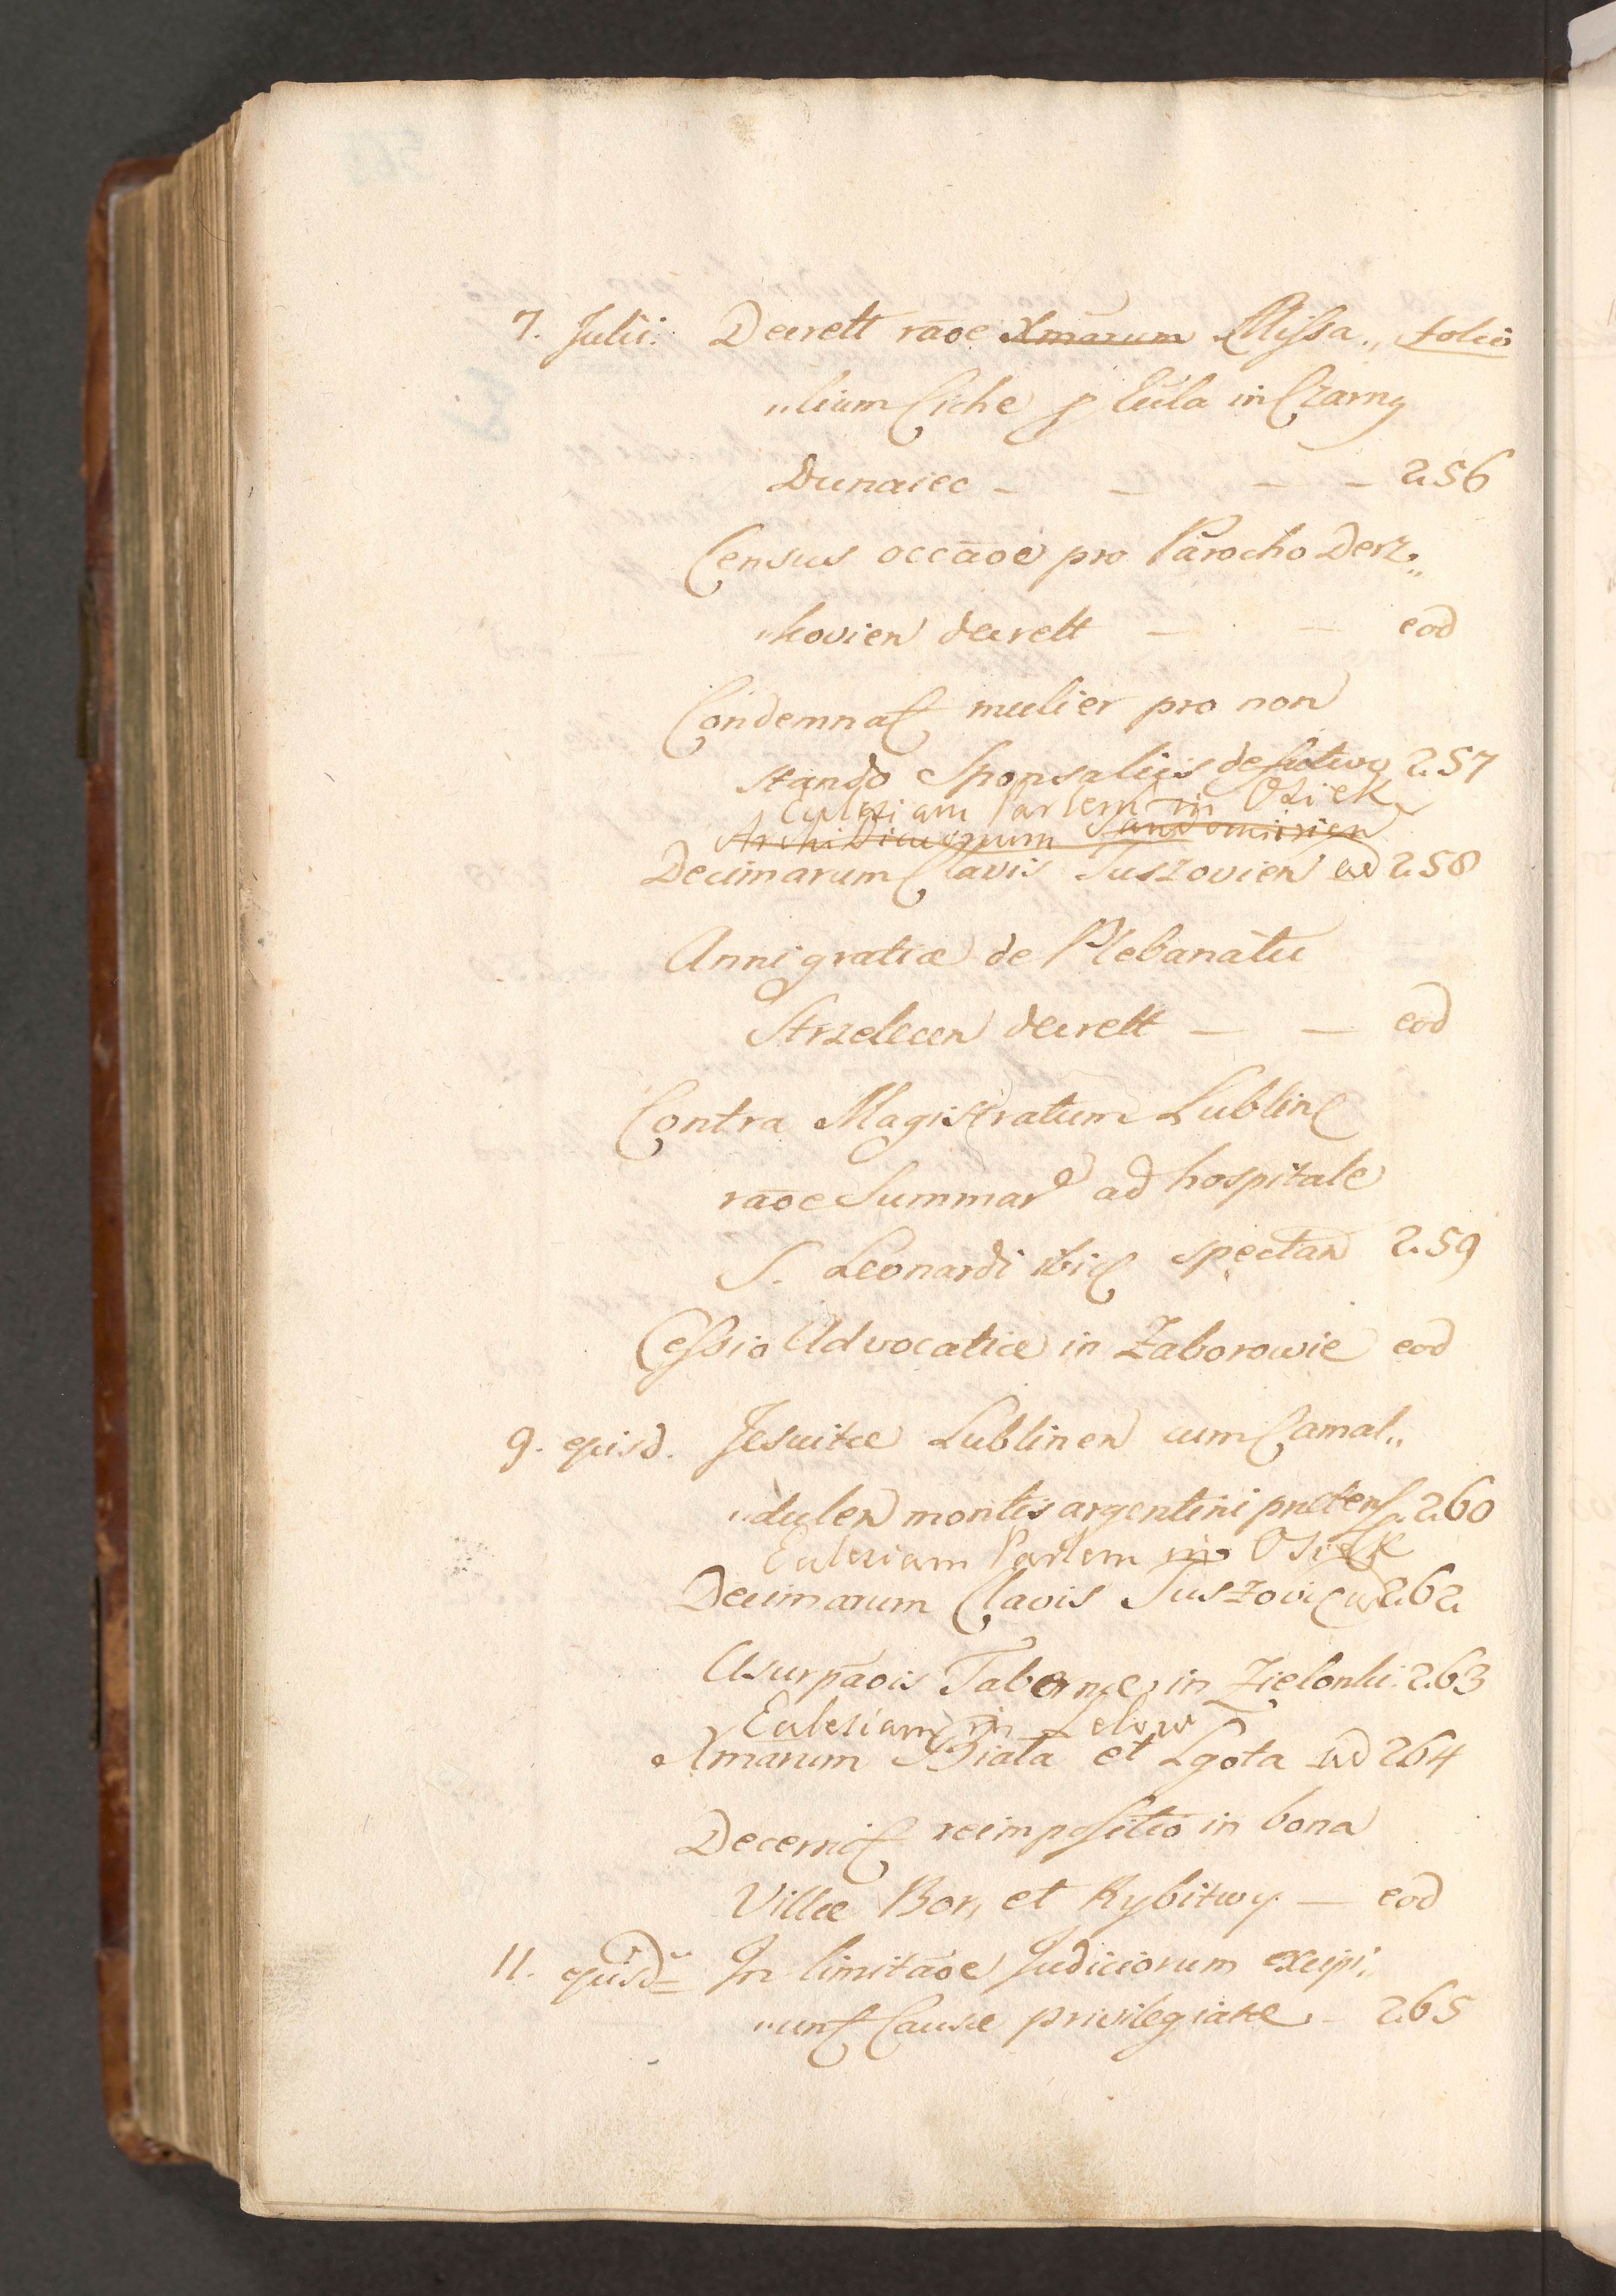 7. Julii. Decrett raōe Xmarum Missa„ folio
„lium Ciche p Eccla in Czarny
Dunaiec - - - - 256
Census occāoe pro Parocho Derz„
„kovien decrett - - eod
Condemnat mulier pro non
stando Sponsaliis de futuro 257
Ecclesiam Parlem in Osiek
Archidiaconum Sandomirien
Decimarum Clavis Tuszovien ad 258
Anni gratiæ de Plebanatu
Strzelecen decrett - - eod
Contra Magistratum Lublin
raōe Summar ad hospitale
S. Leonardi ibid spectan 259
Cessio Advocatiæ in Zaborowie eod
9. ejusd. Jesuitæ Lublinen cum Camal„
„dulen montis argentini prætens 260
Ecclesiam Parlem in Osiek
Decimarum Clavis Tuszovien ad 262
Usurpāois Tabernæ in Zielonki 263
Ecclesiam in Lelow
Xmarum Biała et Lgota ad 264
Decernit reimpositio in bona
Villæ Bor, et Rybitwy - eod
11. ejusd= In limitāoe Judiciorum excipi„
„unt Causæ privilegiatæ - 265